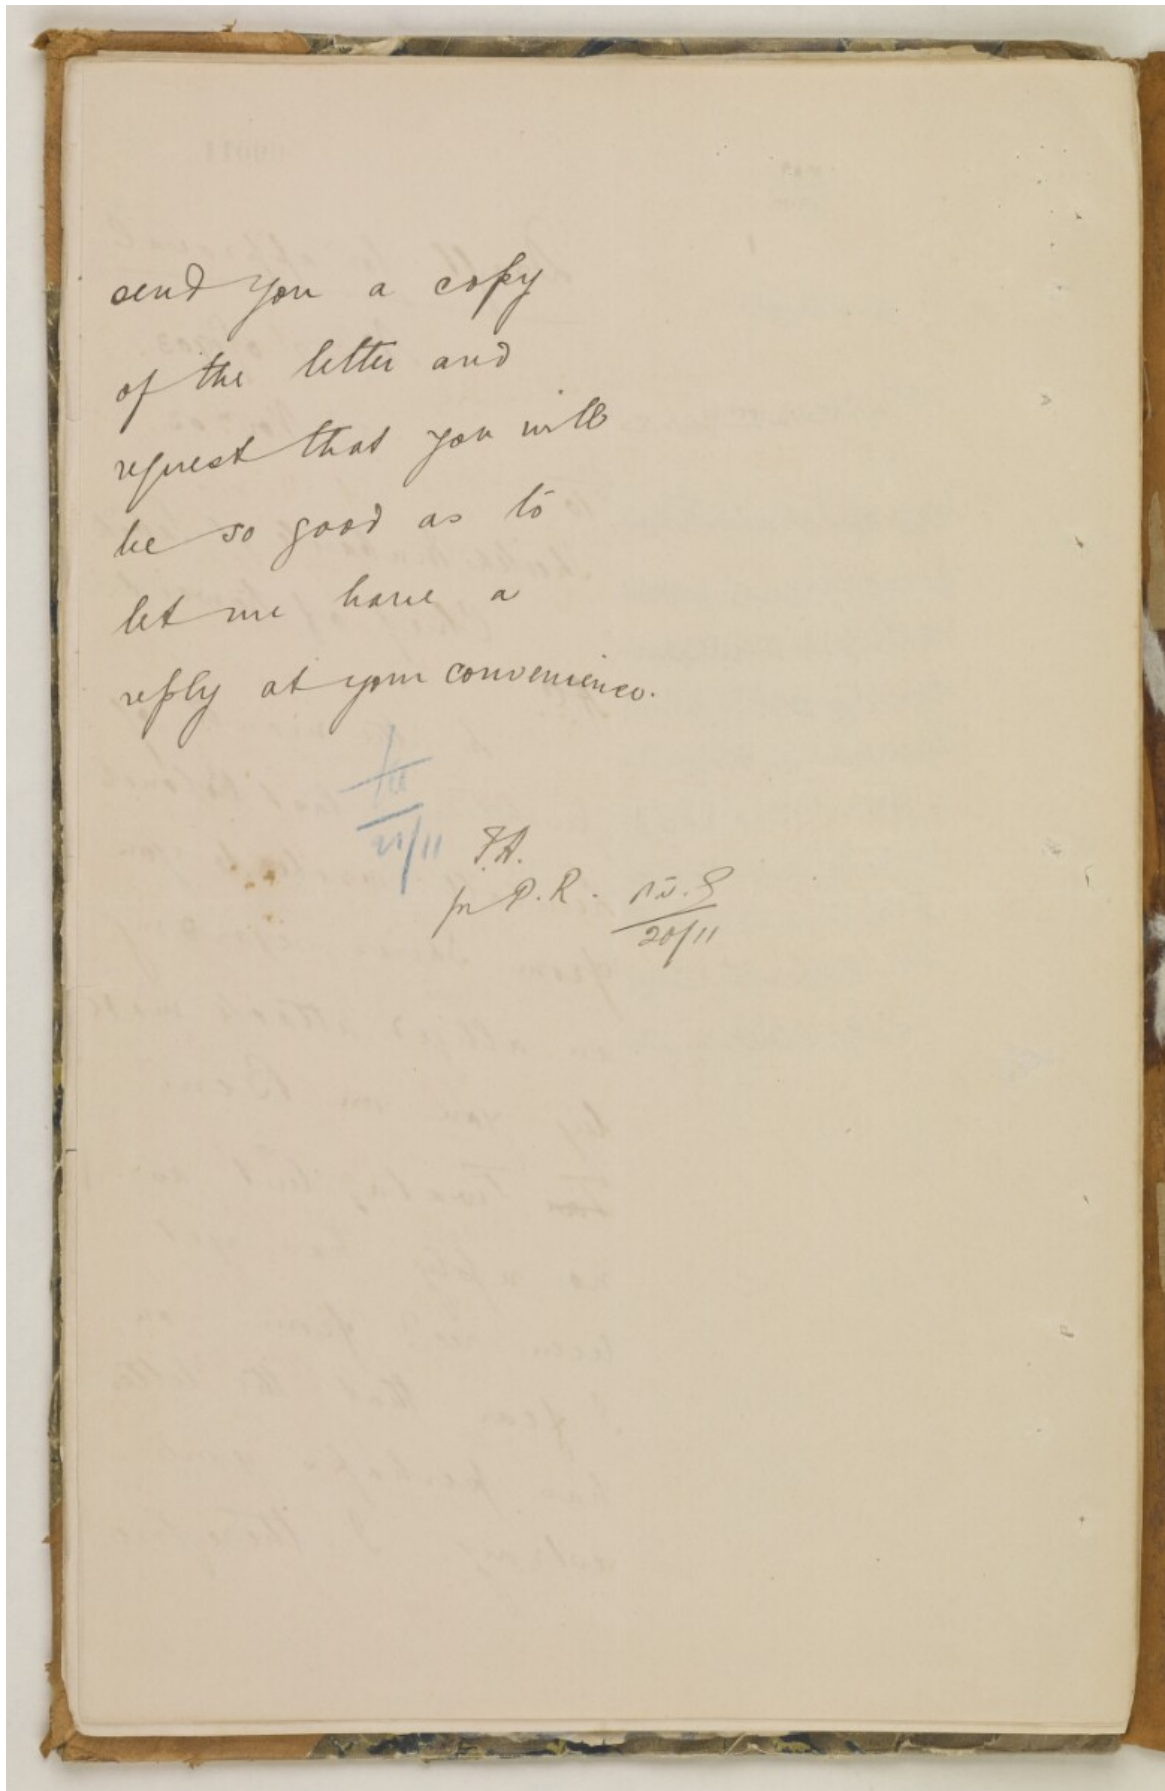 send you a copy
of the letter and
request that you will
be so good as to
let me have a
reply at your convenience.
21/11
F.H.
for P.R.
20/11